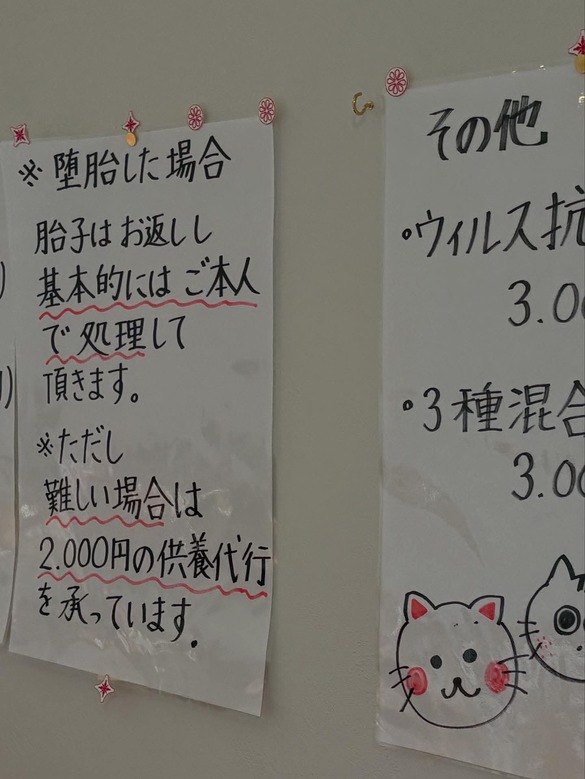 ※堕胎した場合
胎子はお返しし
基本的にはご本人
で処理して
頂きます。
※ただし
難しい場合は
2.000円の供養代行
を承っています.
その他
・ウィルス抗
3.0
・3種混合
3.0